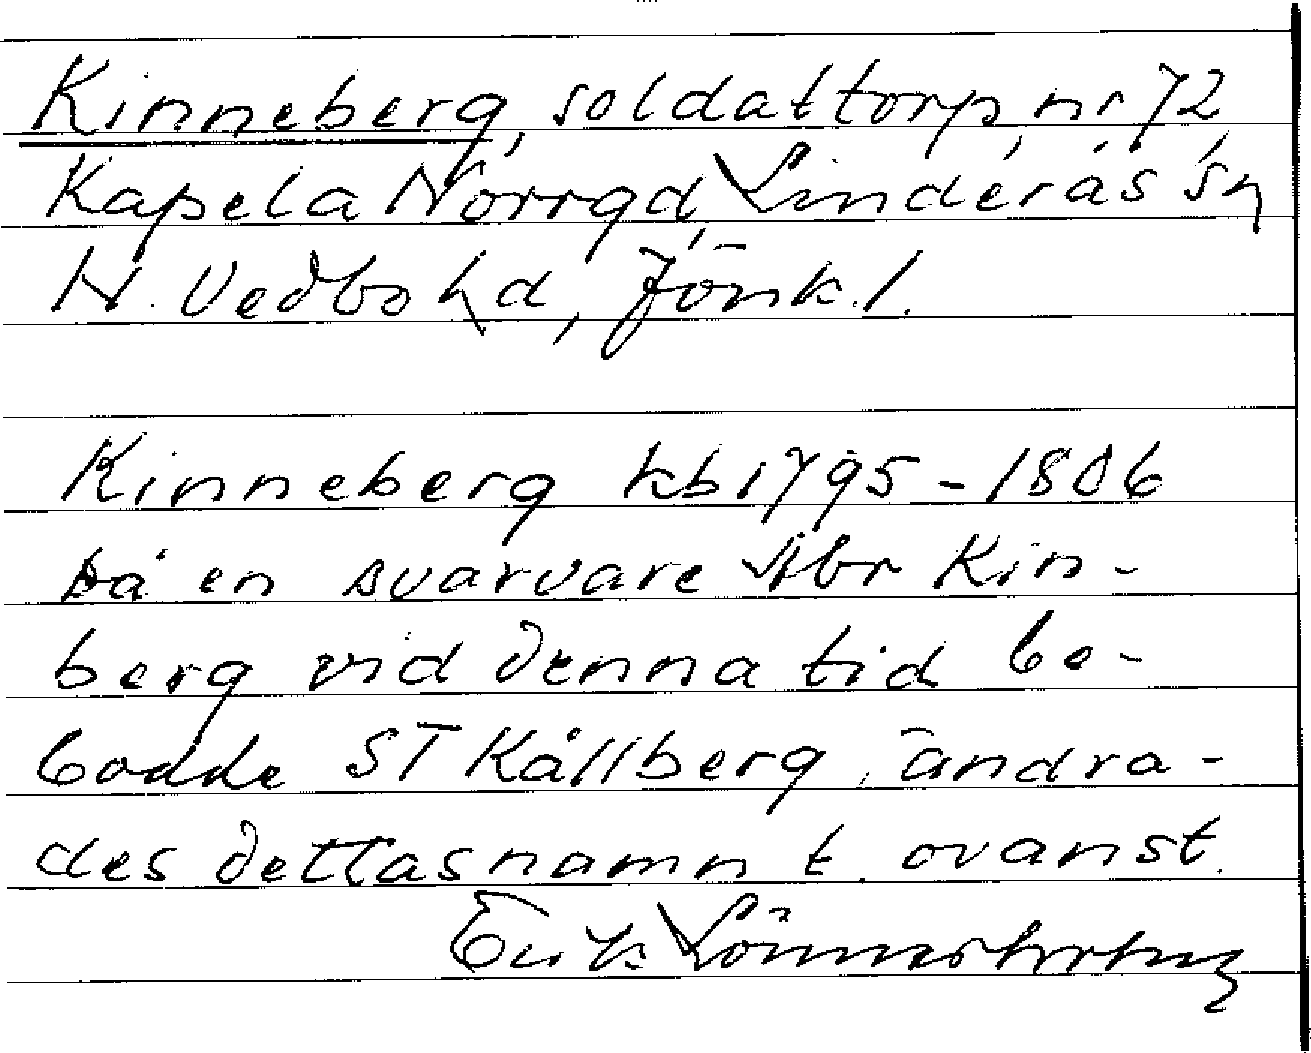 Kinneberg, soldattorp, nr 72,
Kapela Norrgd, Linderås sn
N. Vedbo hd, Jönk. l.
Kinneberg kb 1795-1806
Då en svarvare Abr Kin-
berg vid denna tid be-
bodde ST Källberg, ändra-
des dettas namn t. ovanst.
Erik